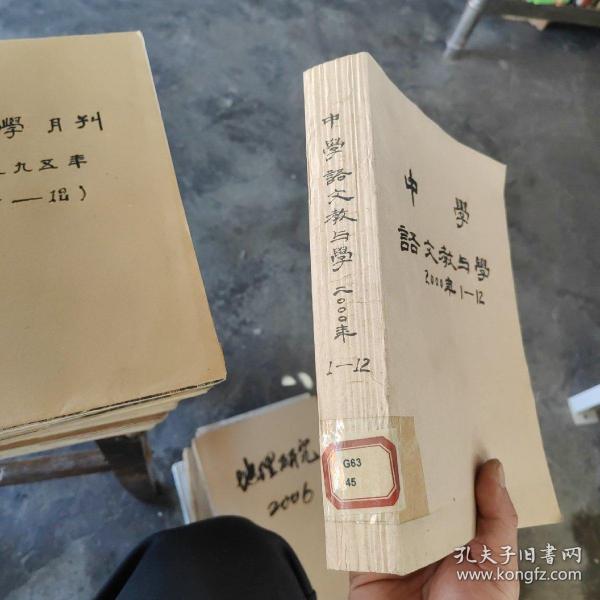 學月刊
九五年
中學語文教与學 二〇〇〇年
1—12
G63
45
中學
語文教与學
2000年1—12
地理研究
2006
孔夫子旧书网
www.kongfz.com